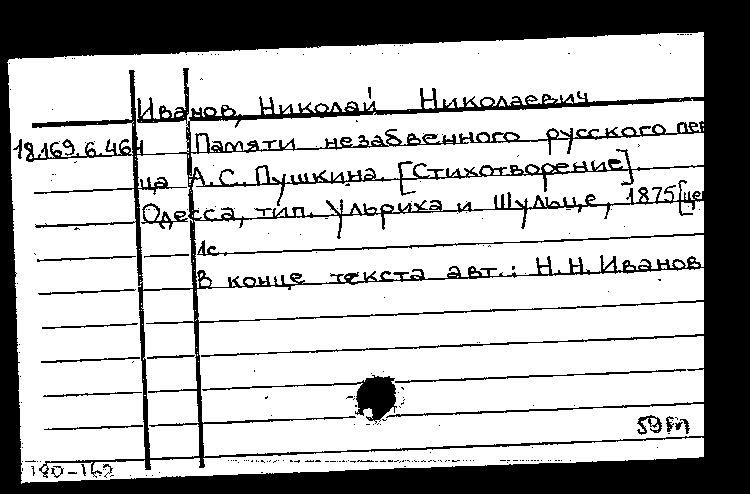 Иванов, Николай Николаевич
18.169.6.464 Памяти незабвенного русского пев
ца А.С. Пушкина. [Стихотворение]
Одесса, тип. Ульриха и Шульце, 1875 [цен
1с.
В конце текста авт.: Н.Н. Иванов
59
180-162